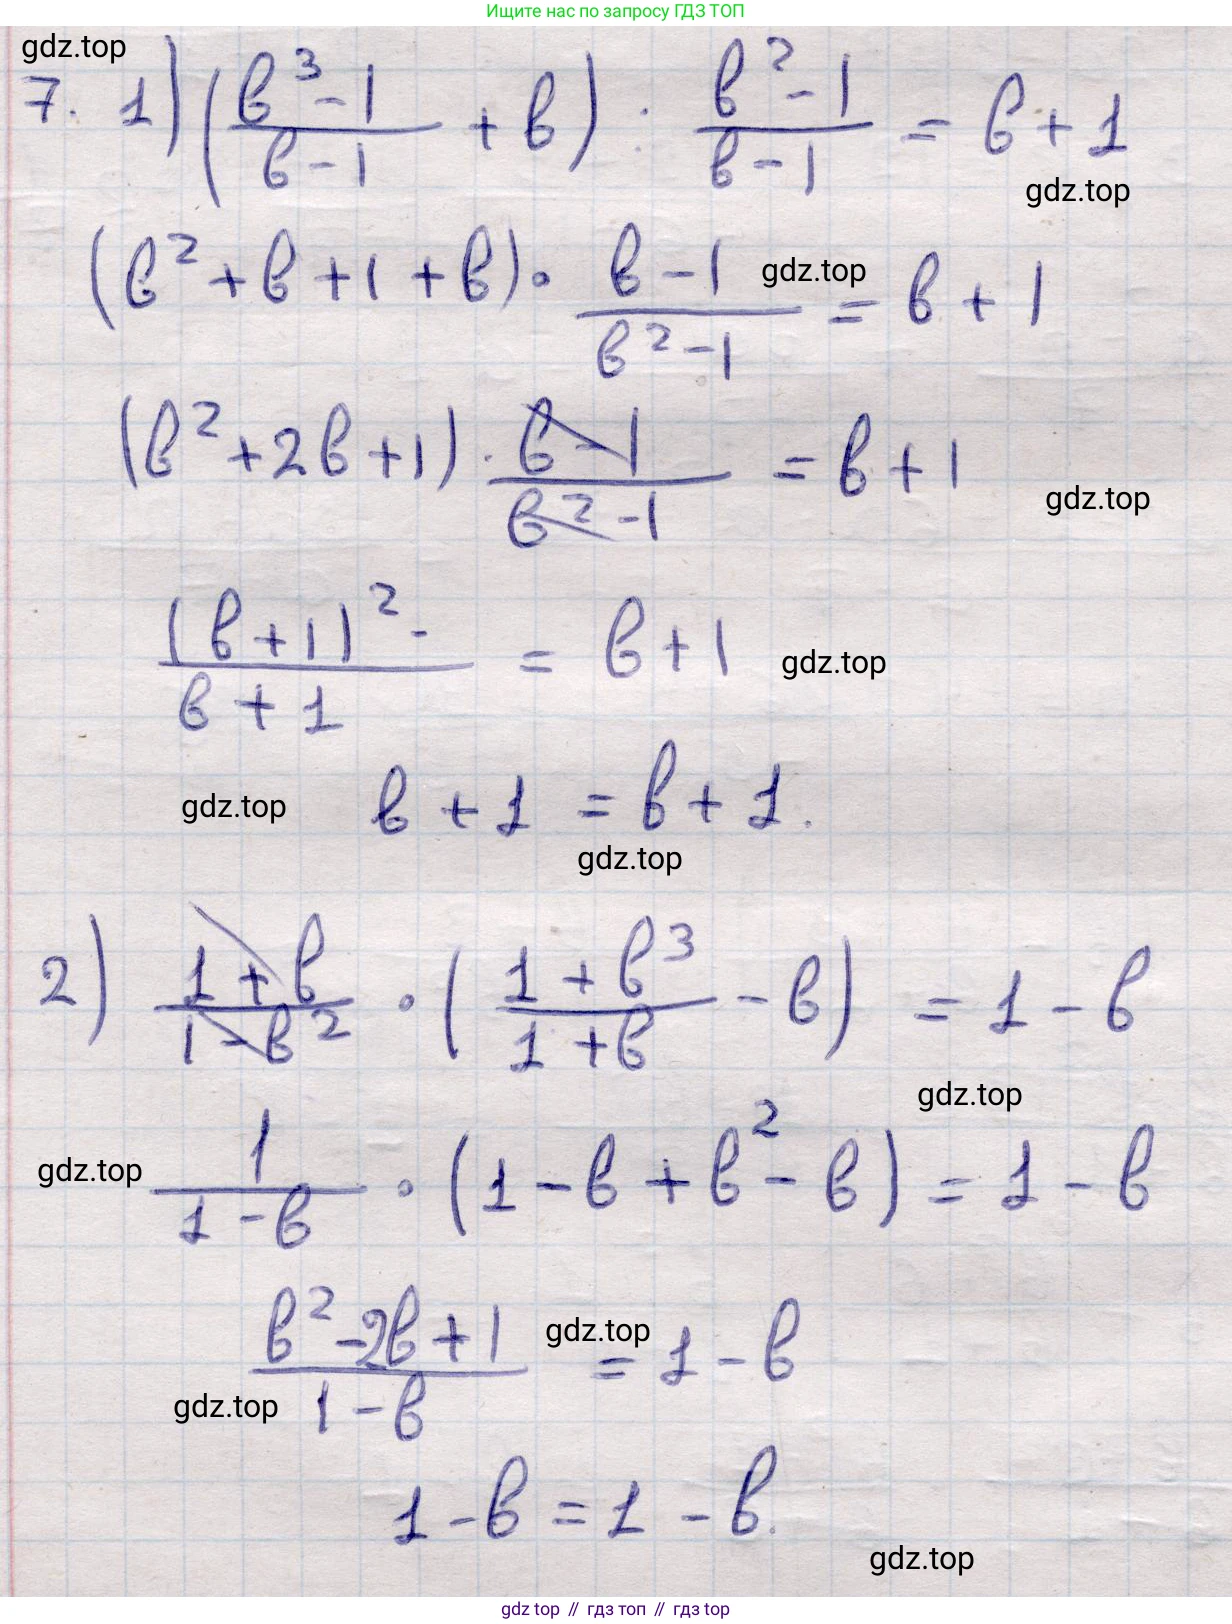 Ищите нас по запросу ГДЗ ТОП
gdz.top
7. 1) (в³-1/в-1 + в) : в²-1/в-1 = в+1
gdz.top
(в²+в+1+в) · в-1/в²-1 = в+1
gdz.top
(в²+2в+1) · в-1/в²-1 = в+1
gdz.top
(в+1)²/в+1 = в+1
gdz.top
gdz.top
в+1 = в+1.
gdz.top
2) 1+в/1-в² · (1+в³/1+в - в) = 1-в
gdz.top
gdz.top
1/1-в · (1-в+в²-в) = 1-в
в²-2в+1/1-в = 1-в
gdz.top
gdz.top
1-в = 1-в.
gdz.top
gdz top // гдз топ // гдз top